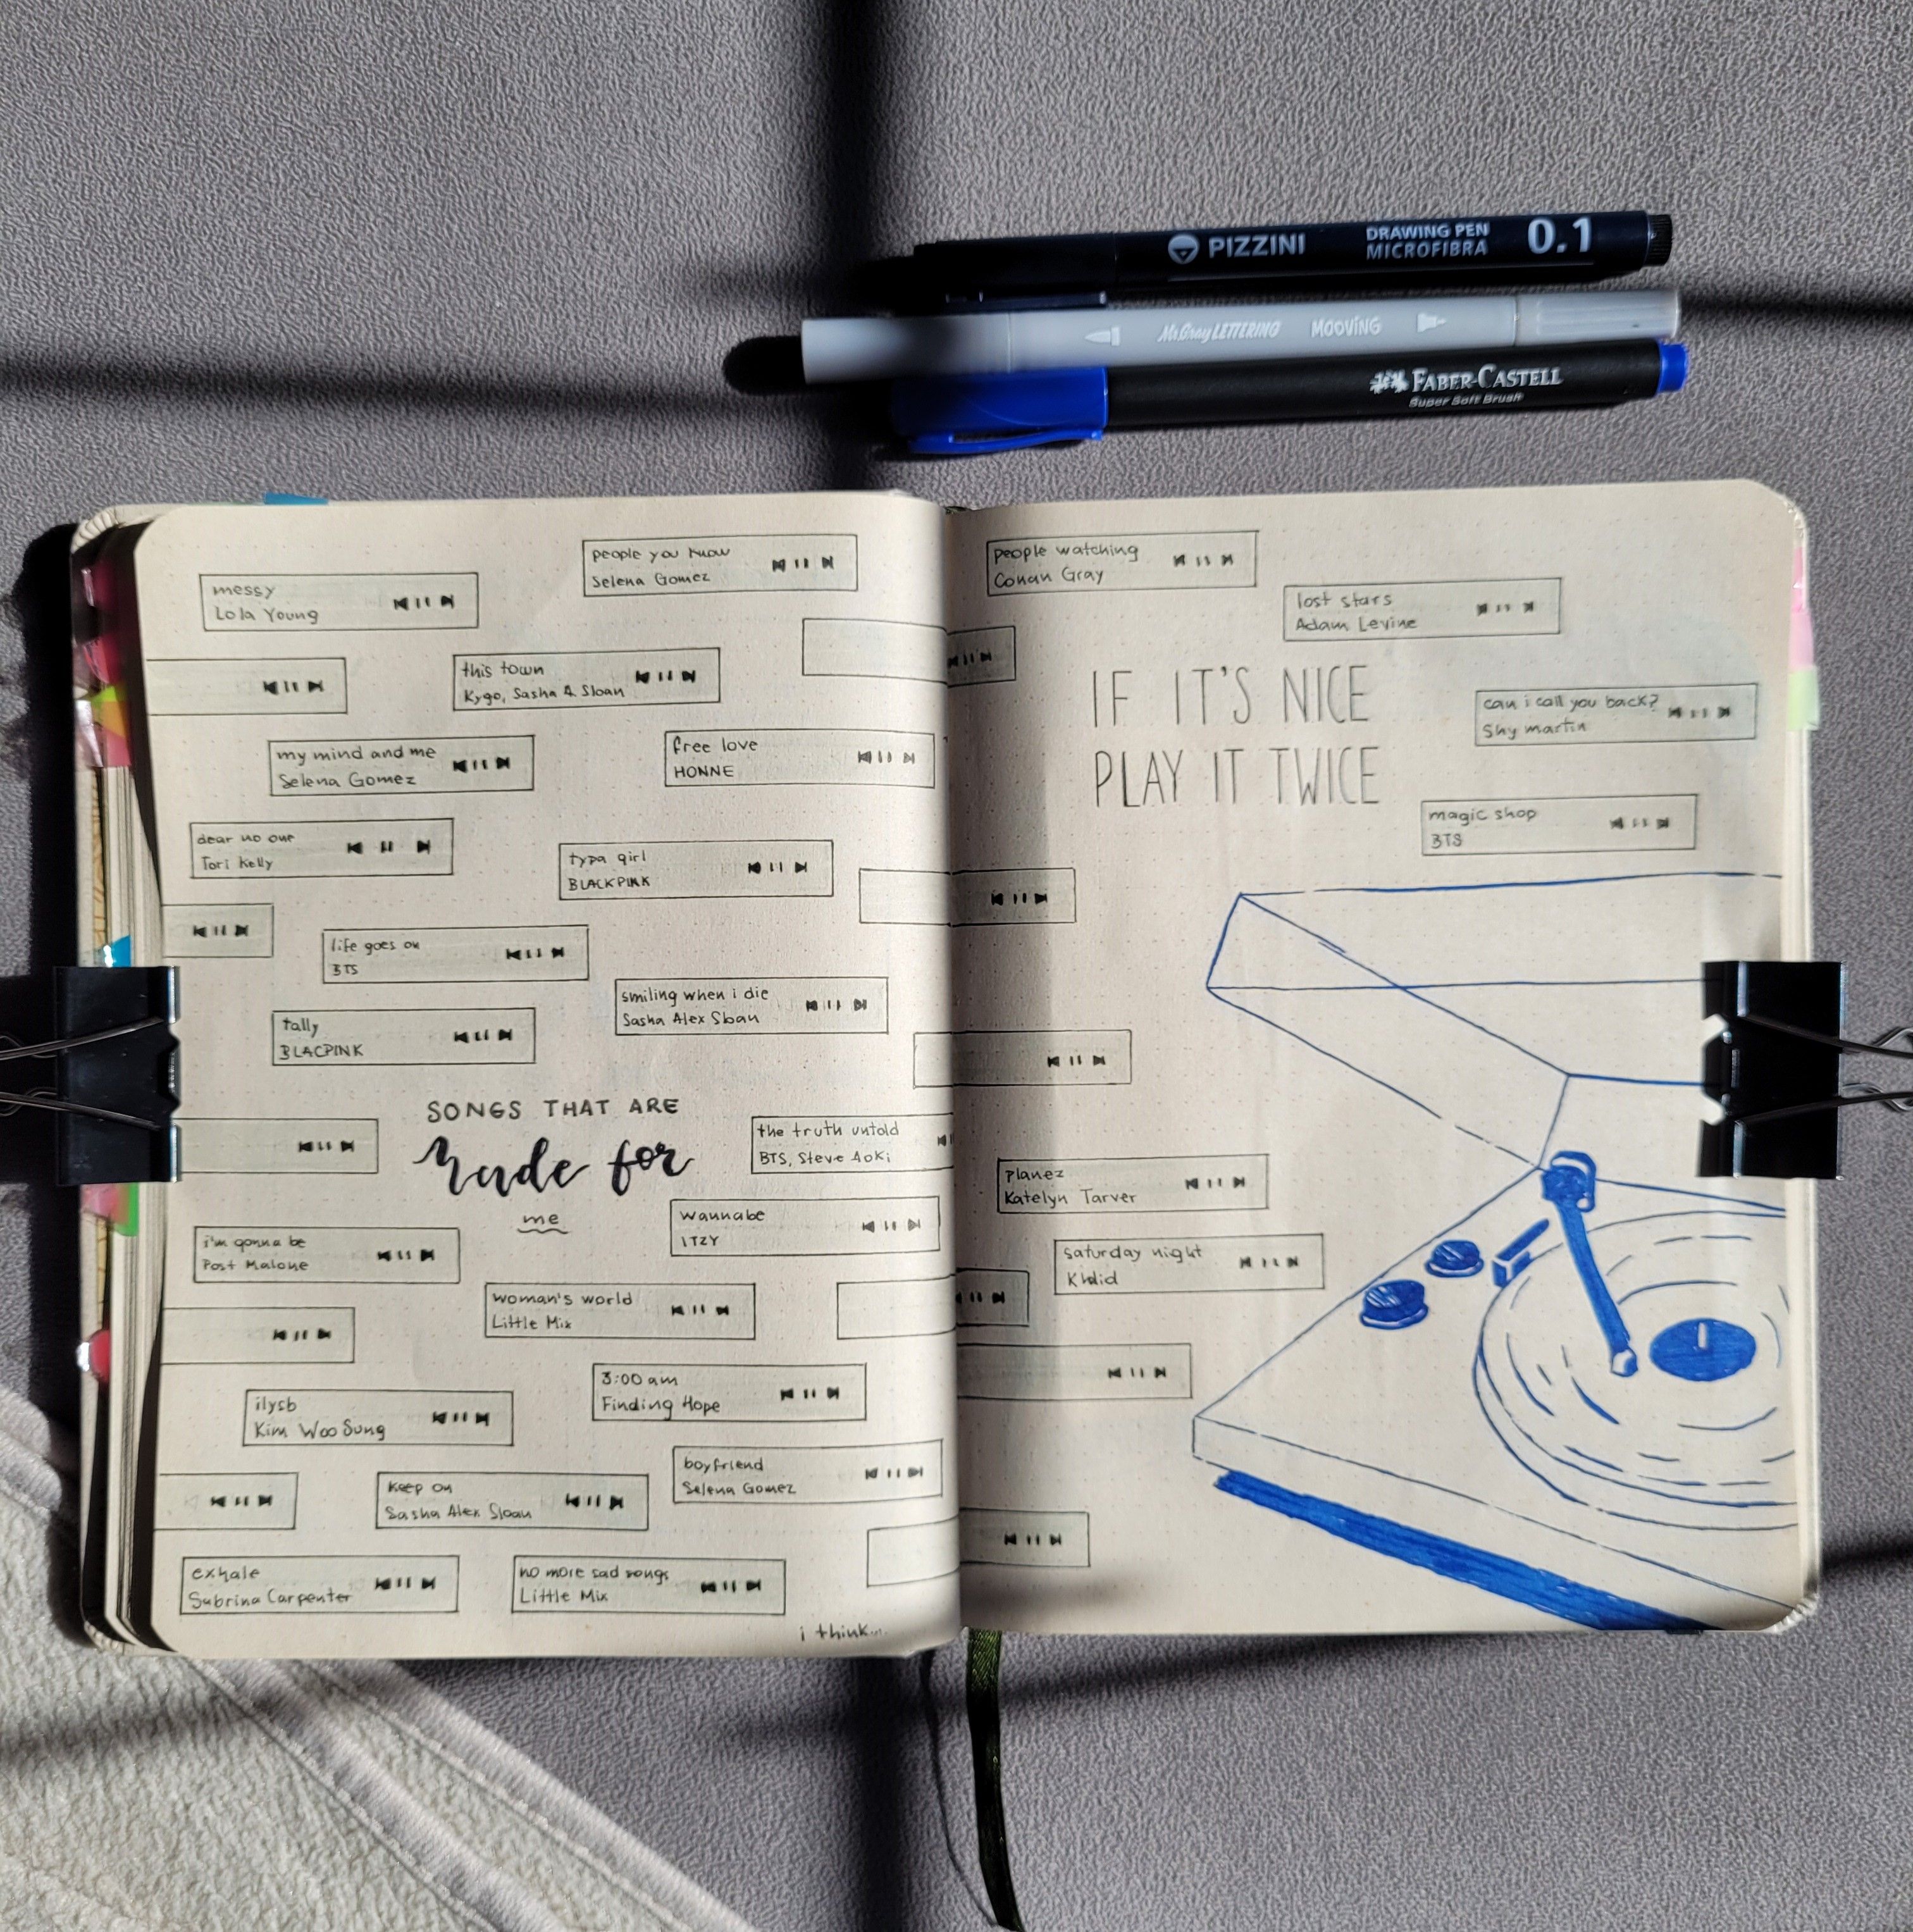 PIZZINI
DRAWING PEN
MICROFIBRA
0.1
Mr.Gray LETTERING MOOVING
FABER-CASTELL
Super Soft Brush
people you know
Selena Gomez
messy
Lola Young
this town
Kygo, Sasha A. Sloan
my mind and me
Selena Gomez
free love
HONNE
dear no one
Tori Kelly
typa girl
BLACKPINK
life goes on
BTS
smiling when i die
Sasha Alex Sloan
tally
BLACPINK
SONGS THAT ARE
made for
me
the truth untold
BTS, Steve Aoki
wannabe
ITZY
i'm gonna be
Post Malone
woman's world
Little Mix
3:00 am
Finding Hope
ilysb
Kim Woo Sung
boyfriend
Selena Gomez
keep on
Sasha Alex Sloan
exhale
Sabrina Carpenter
no more sad songs
Little Mix
i think...
people watching
Conan Gray
lost stars
Adam Levine
IF IT'S NICE
PLAY IT TWICE
can i call you back?
Shy martin
magic shop
BTS
planez
Katelyn Tarver
saturday night
Khalid